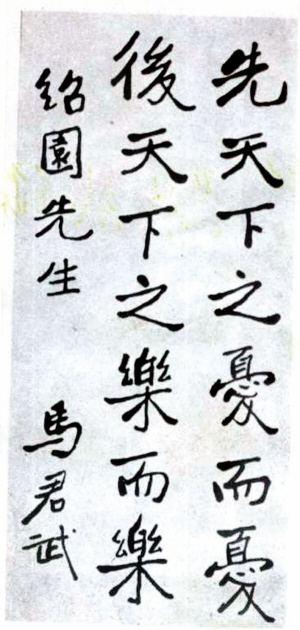 先天下之憂而憂
後天下之樂而樂
紹園先生 馬君武